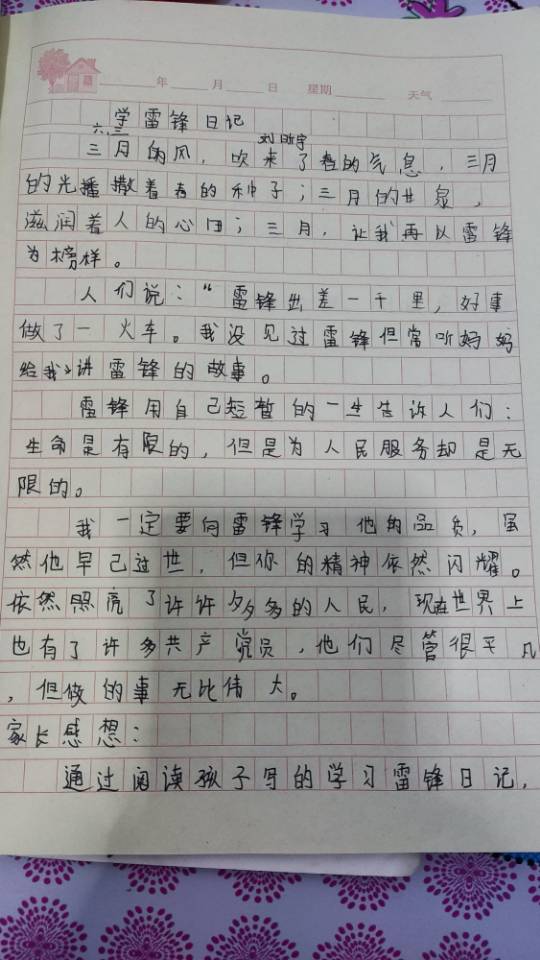 年 月 日 星期 天气
学雷锋日记
六.三 刘
三月的风，吹来了春的气息，三月
的光播撒着春的种子；三月的甘泉，
滋润着人的心田；三月，让我再以雷锋
为榜样。
人们说：“雷锋出差一千里，好事
做了一火车。我没见过雷锋但常听妈妈
给我讲雷锋的故事。
雷锋用自己短暂的一生告诉人们：
生命是有限的，但是为人民服务却是无
限的。
我一定要向雷锋学习他的品质，虽
然他早已过世，但你的精神依然闪耀。
依然照亮了许许多多的人民，现在世界上
也有了许多共产党员，他们尽管很平凡
，但做的事无比伟大。
家长感想：
通过阅读孩子写的学习雷锋日记，